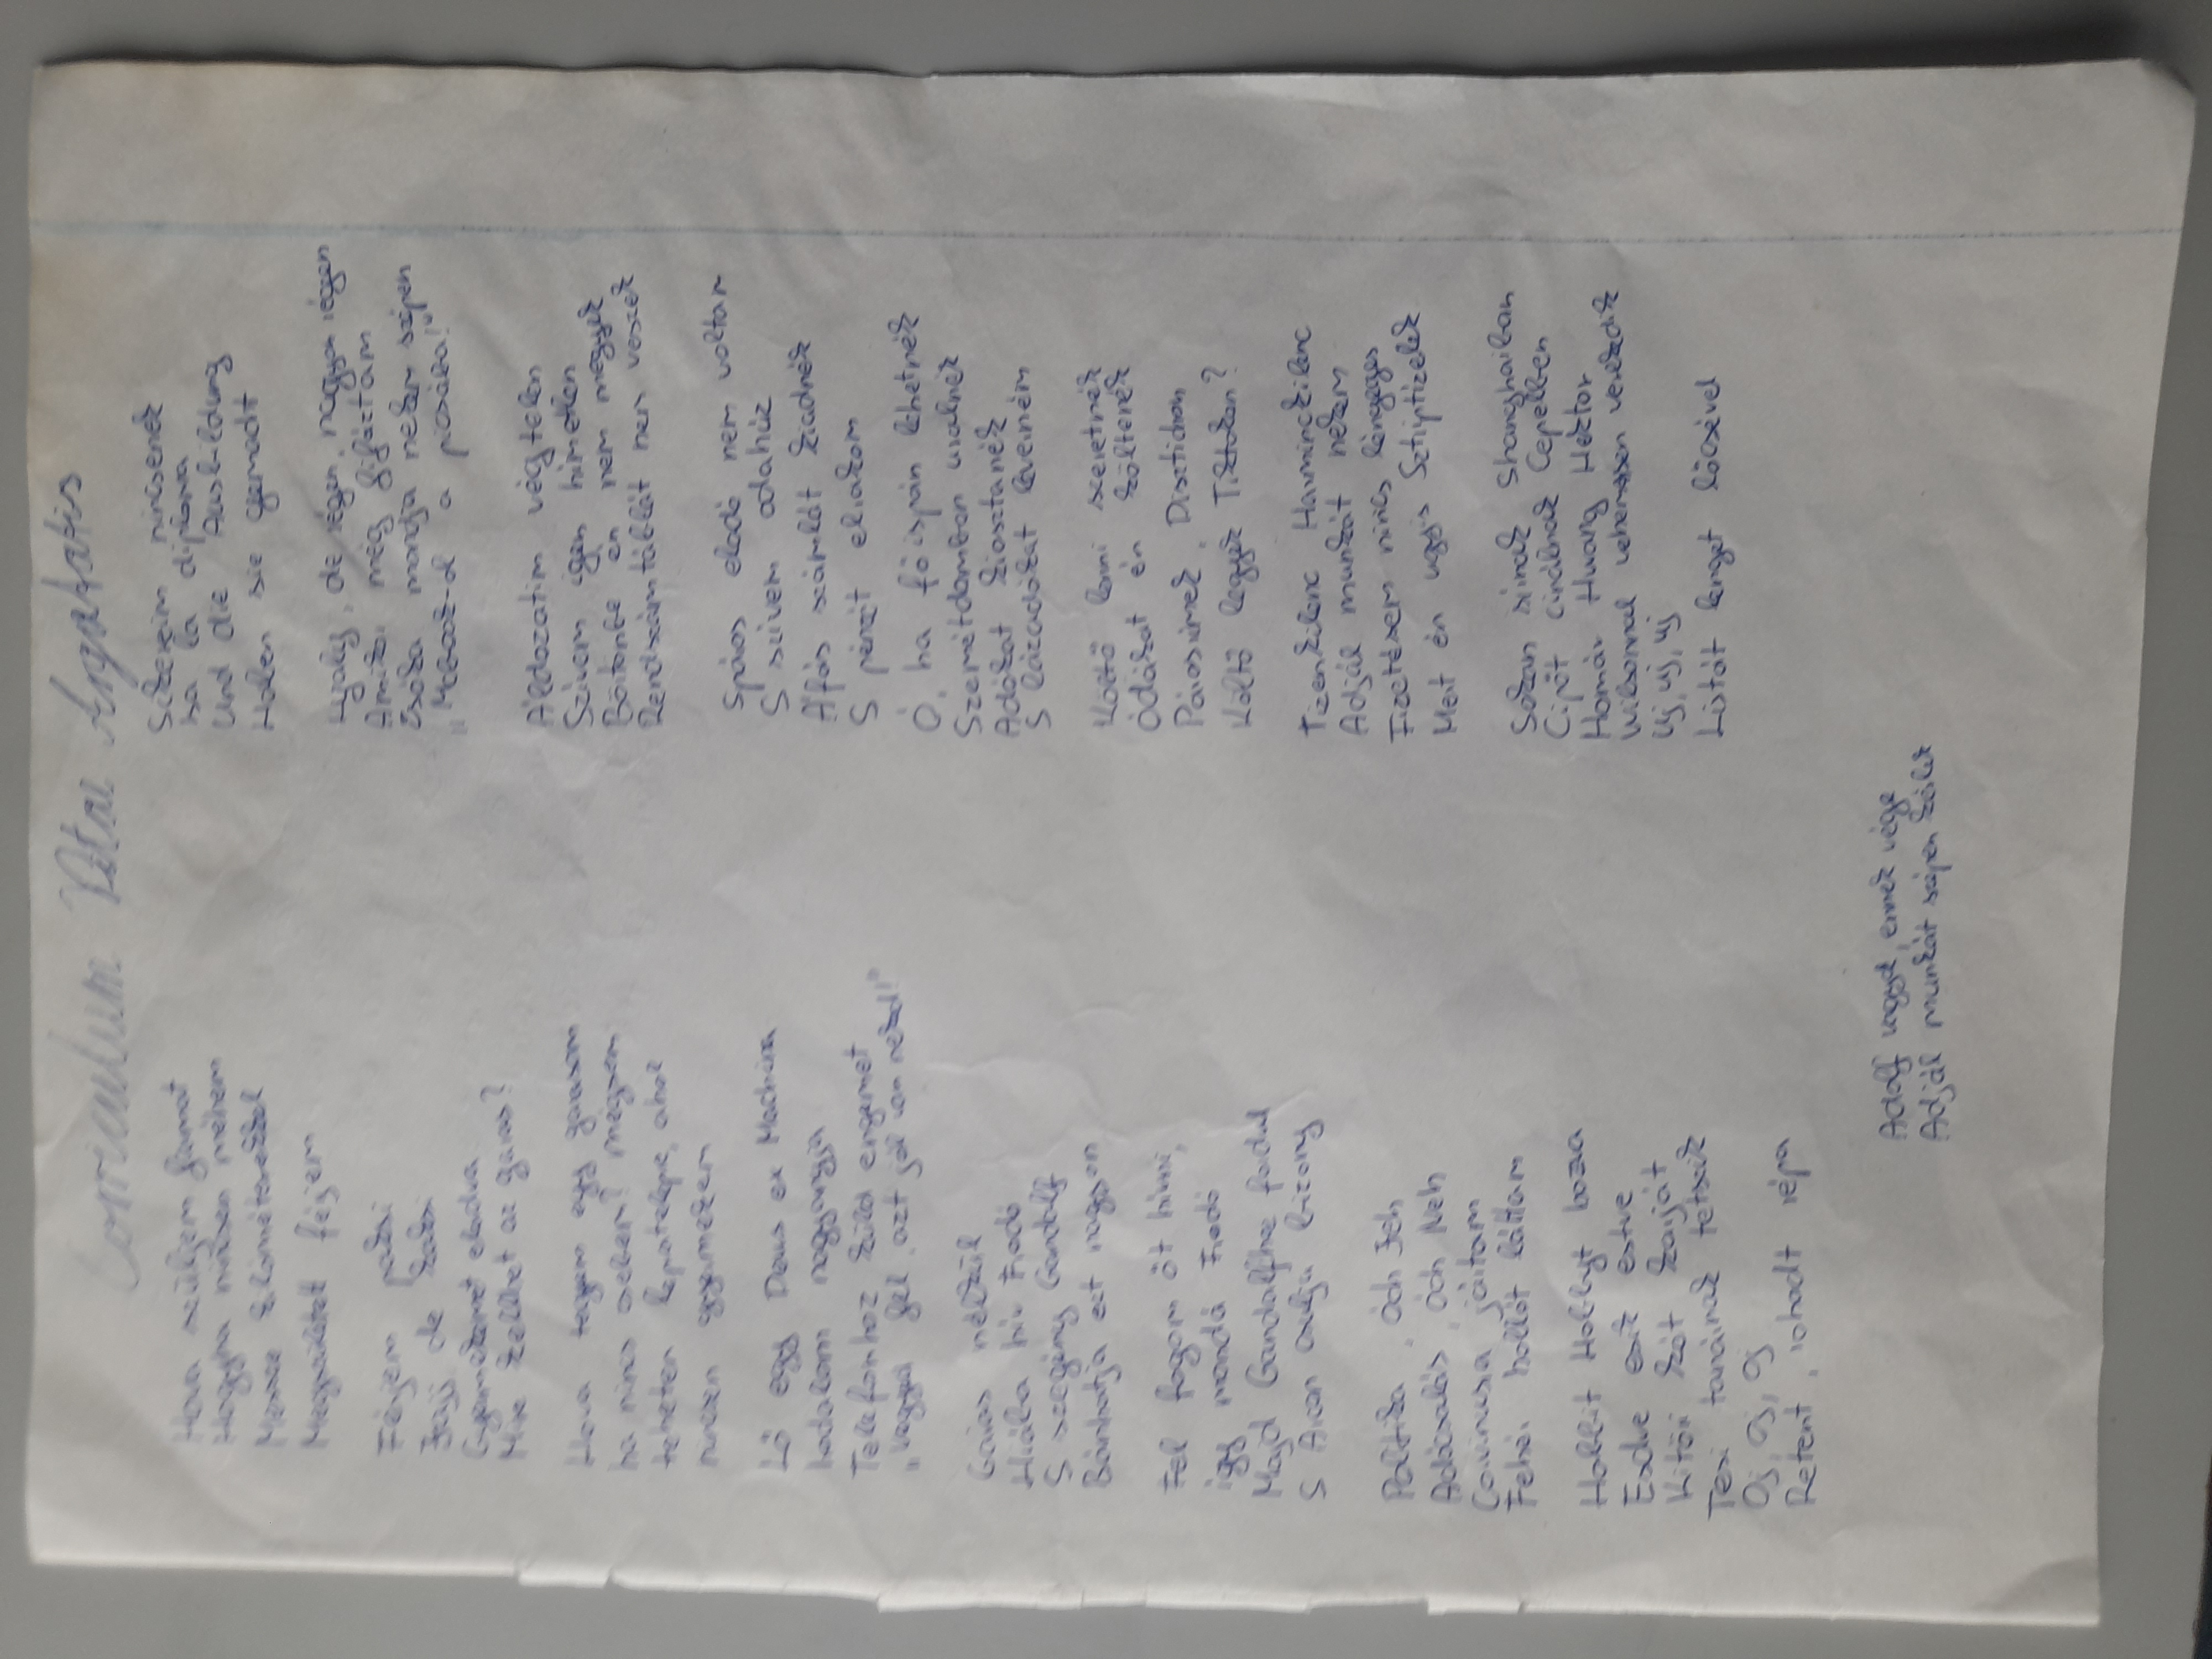 Curriculum Vitae Argatatis
Hova szüljem fiamat
Hogyha nincsen méhem
Messze kilométerekkel
Megszületet férjem
Férjem paksi
Fajj de kaksi
Gyermekemet eladva
Mire kellhet az garas?
Hova tegyem egy garasom
ha nincs zsebem? mégsem
tehetem lepatelepre, ahol
nincsen gyermekem
Lő egy Deus ex Machina
Irodalom nagyanyja
Telefonhoz küld engemet
„Vegyed fel, azt jól van neked!"
Garas nélkül
Hiába hív Frodó
S szegény Gandalf
Bánhatja ezt nagyon
Fel fogom őt hívni,
így mondá Frodó
Majd Gandalfhoz fordul
S Arcon csukja bizony
Politika, Óch Jeh
Adócsalás, Óch Neh
Corvinusra jártam
Fehér hollót láttam
Hobbit Hobbyt hozva
Esdve esik estve
Kitöri két karját
Tesi tanárnak tetszik
Oj, oj, oj
Retent, rohadt répa
Sikereim nincsenek
Isa la diploma
Und die Ausbildung
Haben sie gemacht
Lyaly, de régen, nagyon régen
Amikor még fifáztam
Csóka mondja nekem szépen
„McBook-ol a picsába!"
Áldozatim végtelen
Szívem igen hímetlen
Börtönbe én nem megyek
Rendszámtáblát nem veszek
Spáros eladó nem voltam
S szívem odahúz
Áfás számlát kiadnék
S pénzét elrakom
Ó, ha főispán lehetnék
Szemétdombon uralnék
Adókat kiosztanék
S lázadókat leverném
Költő lenni szeretnék
Ódákat én költenék
Párosrímek, Disztichon
Költő legyek Tiktokon?
Tizenkilenc Harminckilenc
Adjál munkát nekem
Fizetésem nincs lényeges
Mert én ugyis Sztriptízelek
Sokan sírnak Shanghaiban
Cipőt cinálnak Cepelben
Homár Hwang Hektor
Wilsonnal vehemesen verekedik
Uj, uj, uj
Listát lenget lőcsével
Adolf vagyok, ennek vége
Adjál munkát szépen kérlek